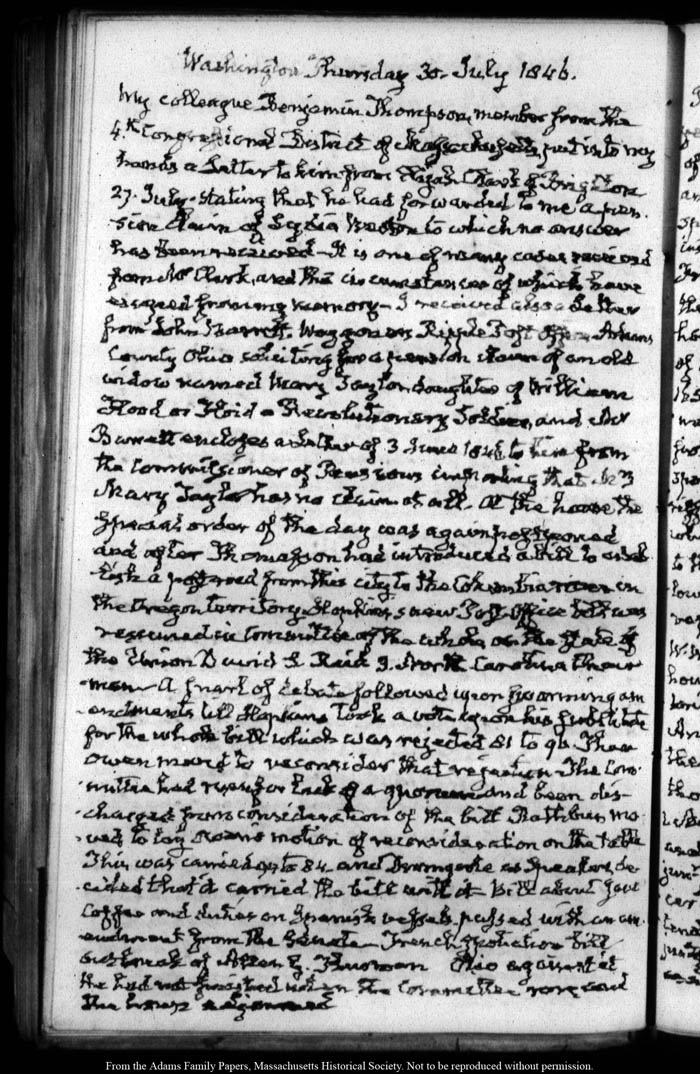 Washington Thursday 30. July 1846.
My colleague Benjamin Thompson, member from the
4.th Congressional District of Massachusetts, put into my
hands a Letter to him from Clark of Brighton
27. July. stating that he had forwarded to me a pen-
sion claim of Lydia to which no answer
has been received. It is one of many cases received
from Mr Clark, and the circumstances of which have
escaped from my memory. I received also a Letter
from John Barrett. Ripple Post office,
County Ohio soliciting for a pension claim of an old
widow named Mary Taylor, daughter of William
Flood or Floid a Revolutionary Soldier, and Mr
Barrett encloses a Letter of 3 June 1846 to him from
the Commissioner of Pensions importing that Mrs
Mary Taylor has no claim at all. At the house the
special order of the day was again postponed
and after Thomasson had introduced a bill to estab-
lish a from this city to the Columbia river in
the Oregon territory, Hopkins's new Post Office bill was
resumed in Committee of the whole on the State of
the Union David S. Reid of North Carolina Chair-
man. A of debate followed upon swarming am-
endments till Hopkins took a vote upon his substitute
for the whole bill which was rejected 81 to 96. Then
Owen moved to reconsider that rejection. The Com-
mittee had risen for lack of a quorum and been dis-
charged from consideration of the bill. Rathbun mo-
ved to lay Owen's motion of reconsideration on the table
This was carried to 84 and Dromgoole as Speaker, de-
cided that it carried the bill with it. Bill about Java
Coffee and duties on Spanish vessels passed with an am-
endment from the Senate. French Spoliation bill
of Allen G. Thurman Ohio against it
he had not finished when the Committee rose, and
the house adjourned
From the Adams Family Papers, Massachusetts Historical Society. Not to be reproduced without permission.